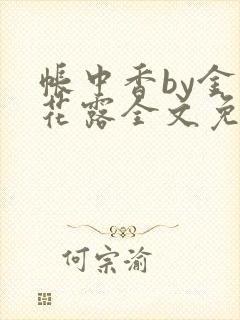 帐中香by金
花露全文免
何宗渝